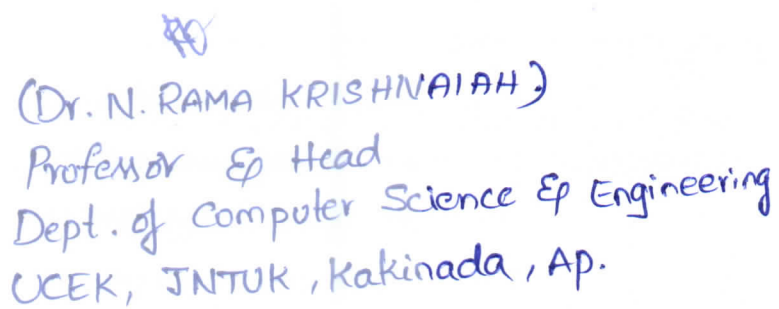 (Dr. N. RAMA KRISHNAIAH.)
Professor & Head
Dept. of Computer Science & Engineering
UCEK, JNTUK, Kakinada, AP.